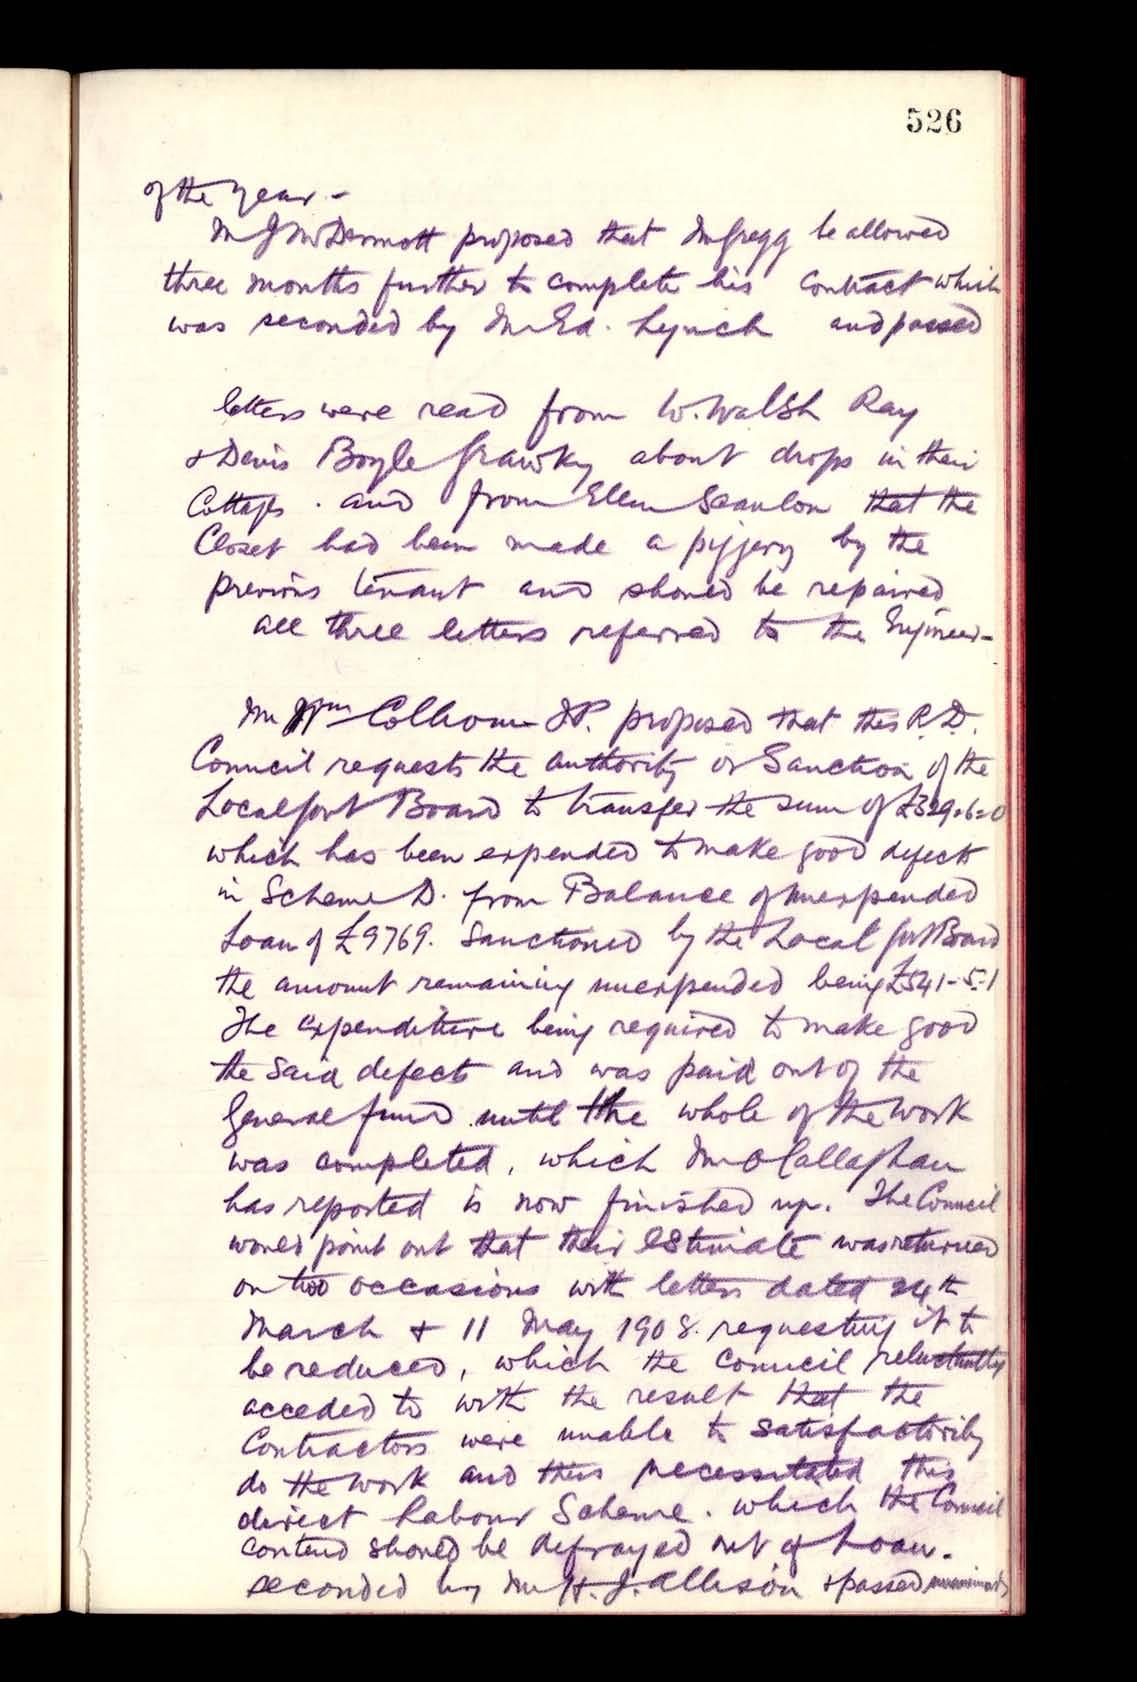 526
of the year -
Mr J McDermott proposed that Mr Gregg be allowed
three months further to complete his contract which
was seconded by Mr Ed. Lynch and passed
letters were read from W. Walsh Ray
& Denis Boyle Grawky about drops in their
Cottages . and from Ellen Scanlon that the
Closet had been made a piggery by the
previous tenant and should be repaired
all three letters referred to the Engineer -
Mr Wm Colhoun J.P. proposed that this R.D.
Council requests the authority or Sanction of the
Local Govt Board to transfer the sum of £329-6-0
which has been expended to make good defects
in Scheme D. from Balance of unexpended
Loan of £9769. Sanctioned by the Local Govt Board
the amount remaining unexpended being £541-5-1
The expenditure being required to make good
the said defects and was paid out of the
General fund until the whole of the work
was completed, which Mr O Callaghan
has reported is now finished up. The Council
would point out that their Estimate was returned
on two occasions with letters dated 24th
March & 11 May 1908. requesting it to
be reduced, which the Council reluctantly
acceded to with the result that the
Contractors were unable to satisfactorily
do the work and thus necessitated this
direct labour Scheme. which the Council
contend should be defrayed out of Loan.
seconded by Mr H. J. Allison & passed unanimously